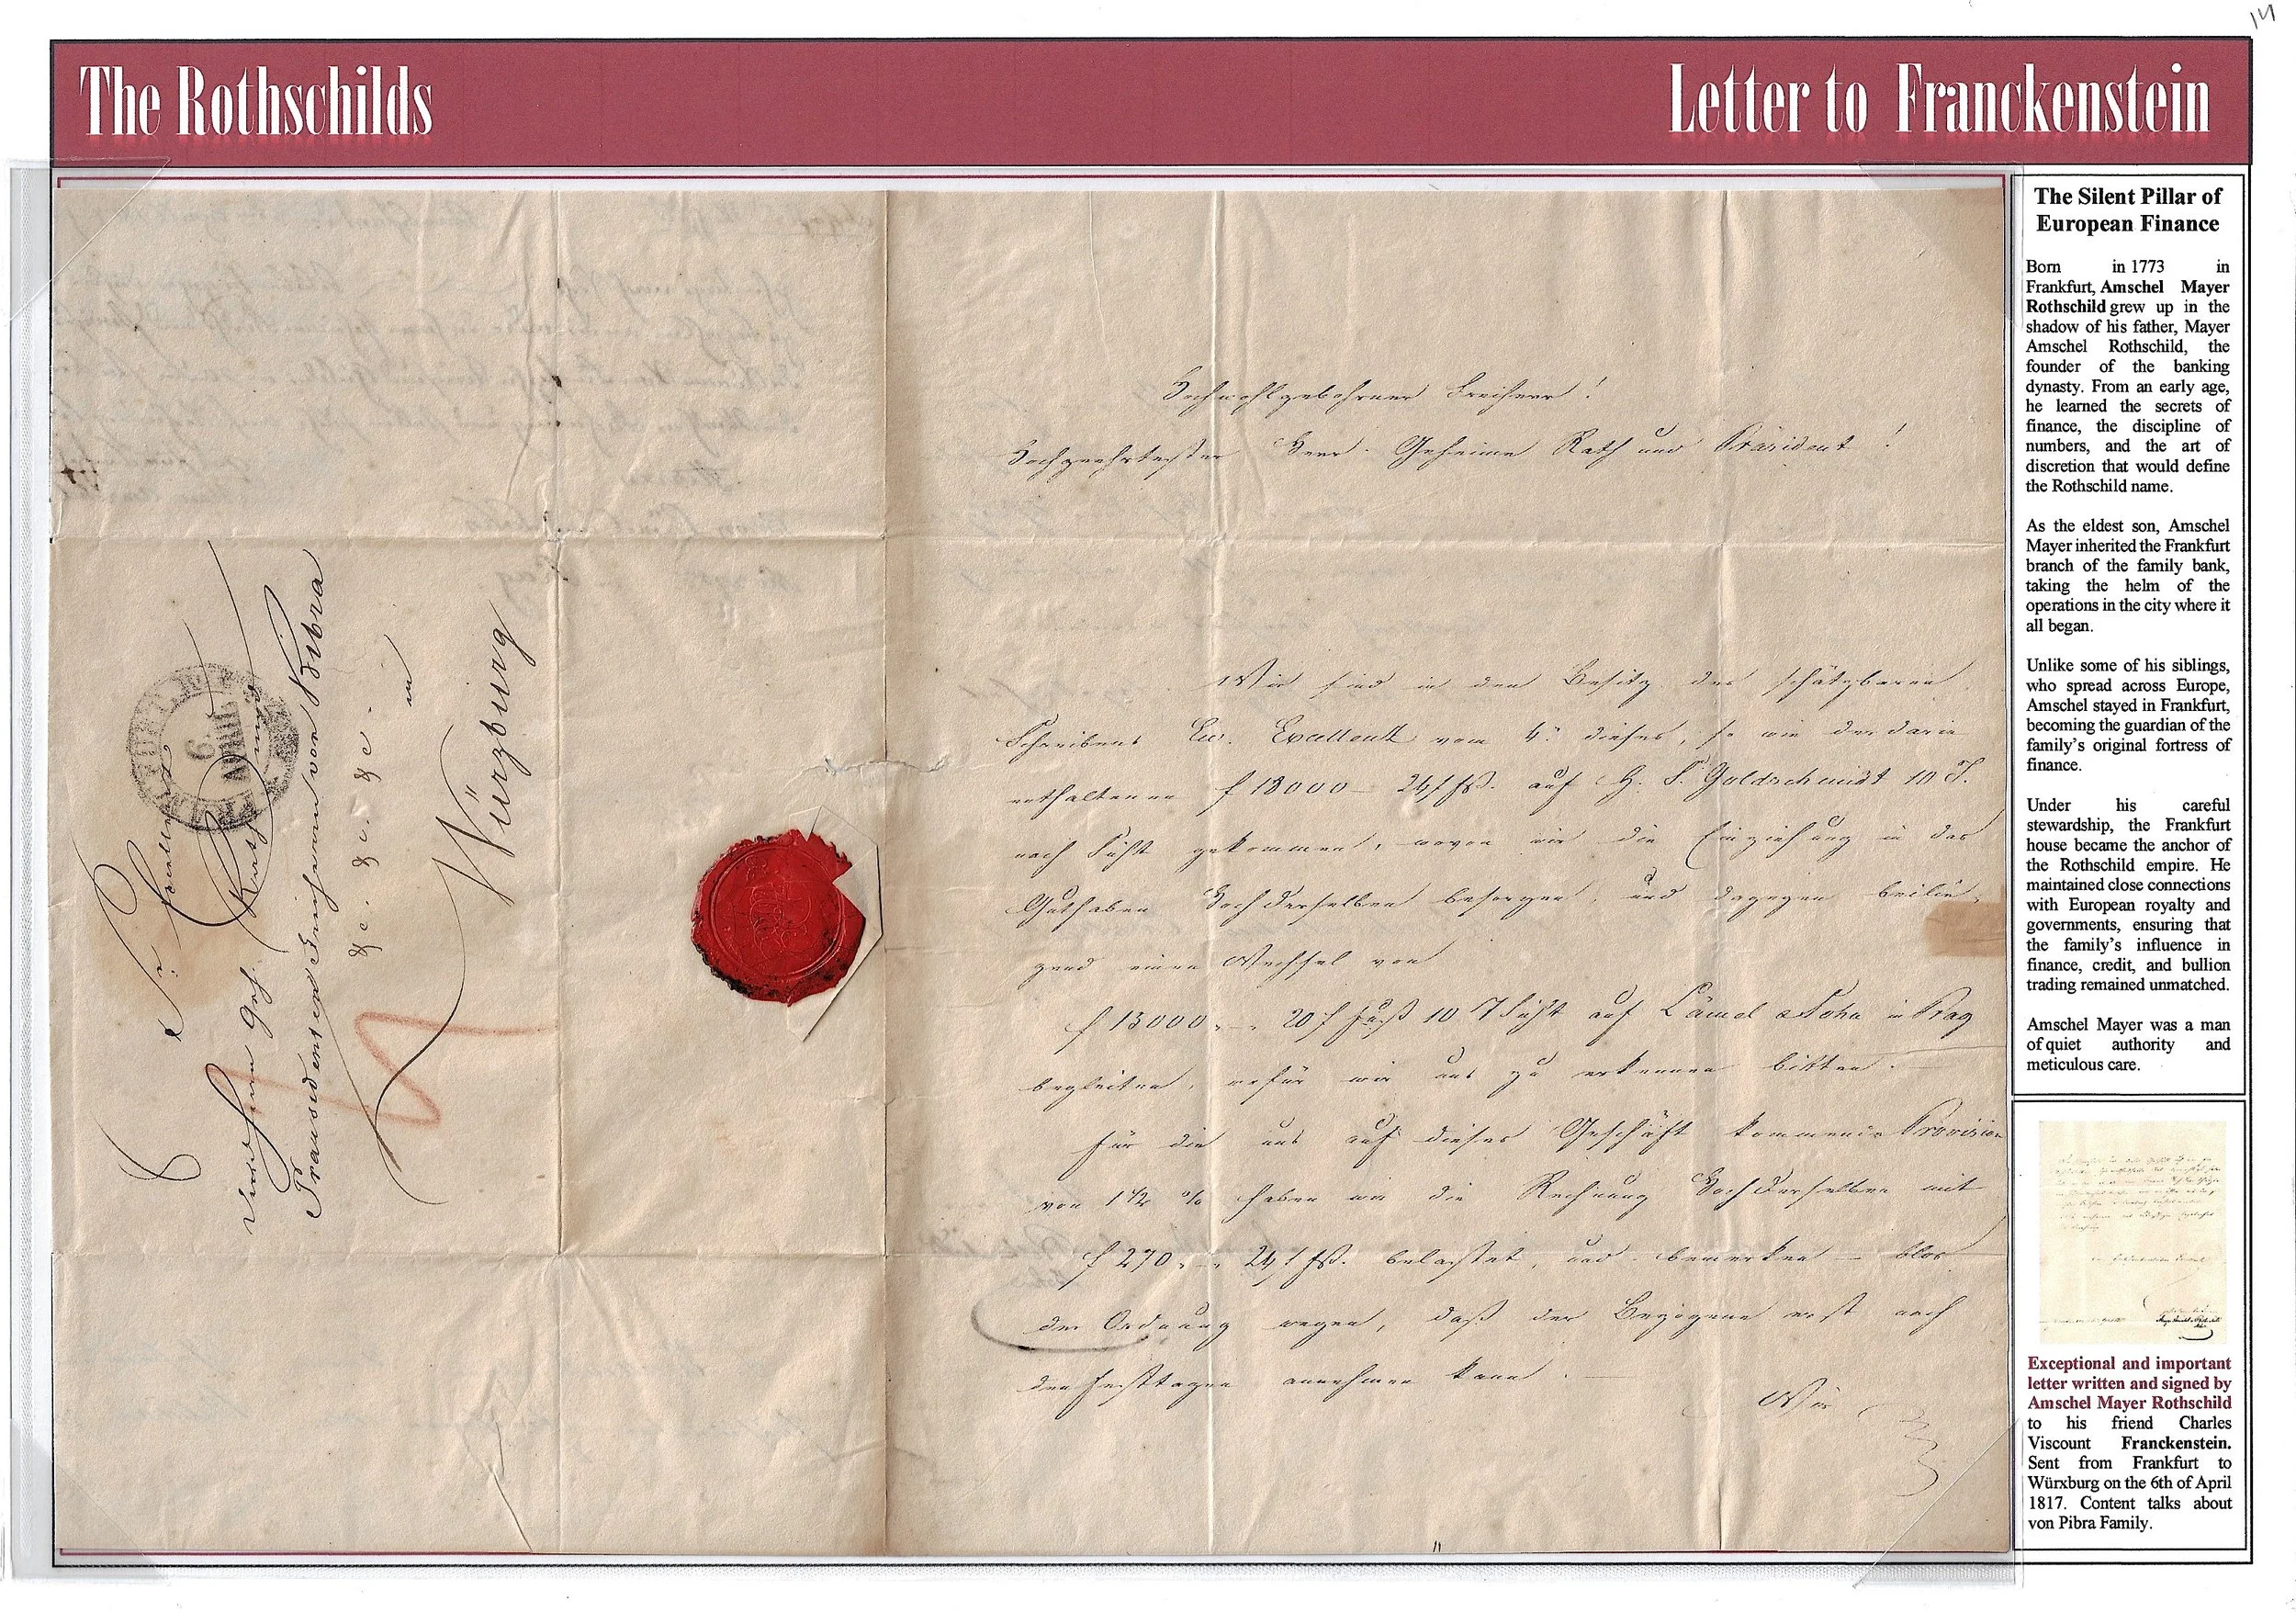 14
The Rothschilds
Letter to Franckenstein
Hochwohlgebohrner Freiherr!
Hochgeehrtester Herr Geheime Rath und Präsident!
Wir sind in dem Besitz des schätzbaren
Schreibens Ew. Excellenz vom 4. dieses, so wie der darin
enthaltenen f 18000 – 24 f fß. auf H. S. Goldschmidt 10 T.
nach Sicht gekommen, wovon wir die Einziehung in das
Guthaben Hochderselben besorgen, und dagegen beilie-
gend einen Wechsel von
f 15000 . – . 20 f Fuß 10 T Sicht auf Lämel & Sohn in Prag
begleiten, wofür wir uns zu erkennen bitten. –
Für die uns auf dieses Geschäft kommende Provision
von 1 1/2 % haben wir die Rechnung Hochderselben mit
f 270 . – . 24 f fß. belastet, und bemerken – blos
der Ordnung wegen, daß der Bezogene erst nach
den Festtagen annehmen kann. –
Wir
Sr. Excellenz
Geh. Rath und
Praesidenten Freiherrn von Bibra
&c. &c. &c.
in
Würzburg
FRANKFURT
6
APRIL
The Silent Pillar of
European Finance
Born in 1773 in
Frankfurt, Amschel Mayer
Rothschild grew up in the
shadow of his father, Mayer
Amschel Rothschild, the
founder of the banking
dynasty. From an early age,
he learned the secrets of
finance, the discipline of
numbers, and the art of
discretion that would define
the Rothschild name.
As the eldest son, Amschel
Mayer inherited the Frankfurt
branch of the family bank,
taking the helm of the
operations in the city where it
all began.
Unlike some of his siblings,
who spread across Europe,
Amschel stayed in Frankfurt,
becoming the guardian of the
family's original fortress of
finance.
Under his careful
stewardship, the Frankfurt
house became the anchor of
the Rothschild empire. He
maintained close connections
with European royalty and
governments, ensuring that
the family's influence in
finance, credit, and bullion
trading remained unmatched.
Amschel Mayer was a man
of quiet authority and
meticulous care.
Exceptional and important
letter written and signed by
Amschel Mayer Rothschild
to his friend Charles
Viscount Franckenstein.
Sent from Frankfurt to
Würxburg on the 6th of April
1817. Content talks about
von Pibra Family.